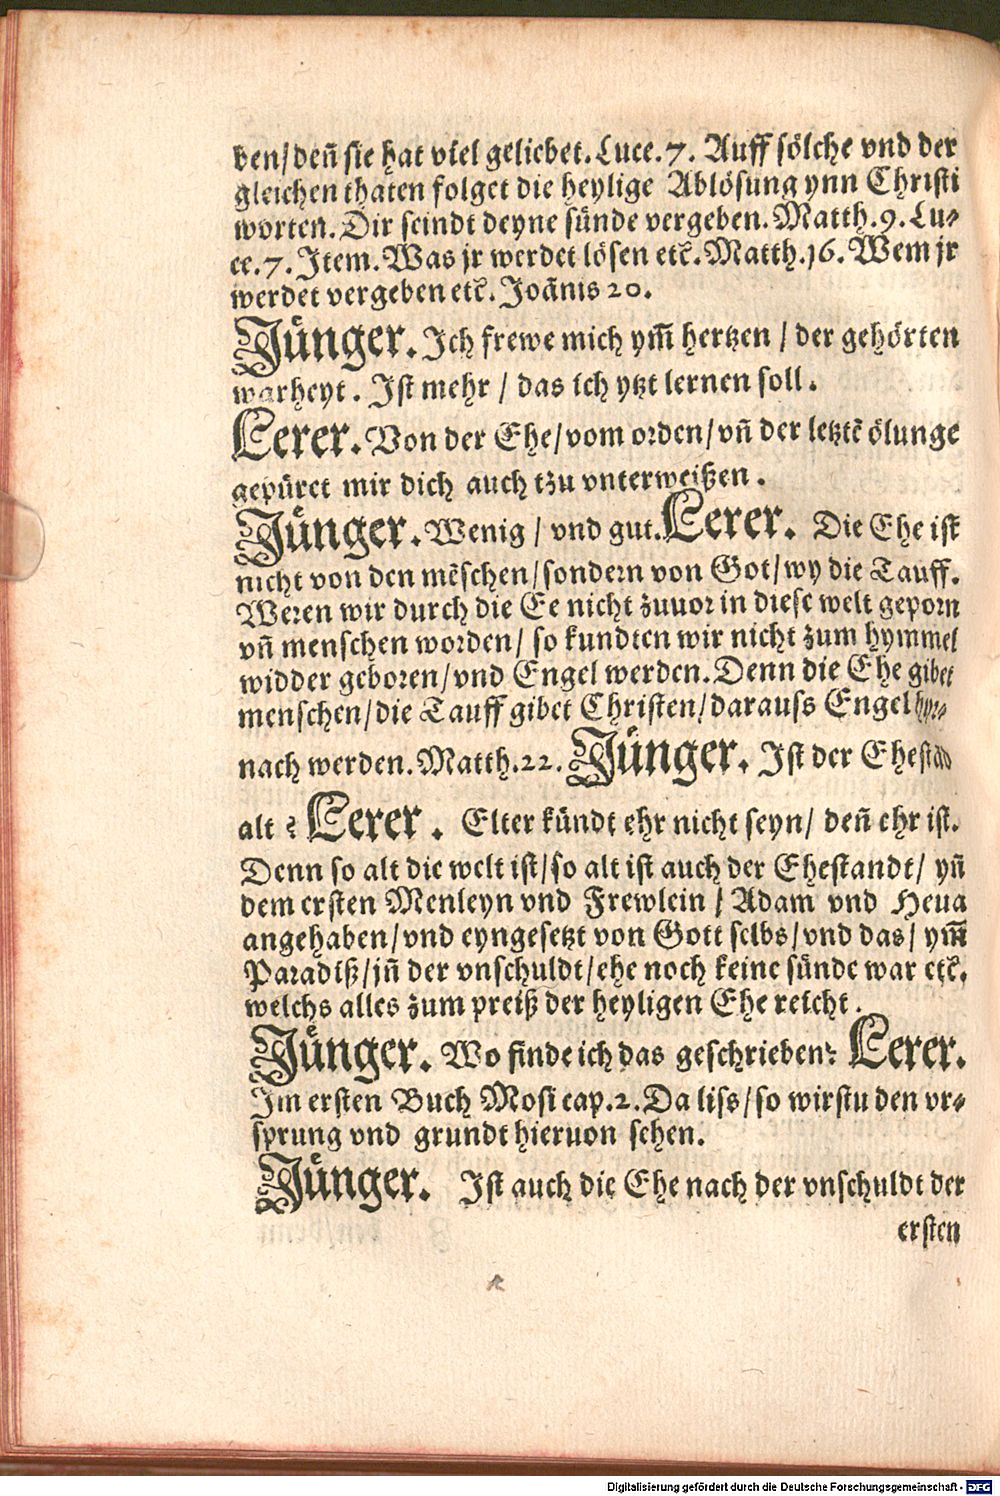 ben/ deñ sie hat viel geliebet. Luce. 7. Auff sölche vnd der
gleichen thaten folget die heylige Ablösung ynn Christi
worten. Dir seindt deyne sünde vergeben. Matth. 9. Lu⸗
ce. 7. Item. Was jr werdet lösen etc̄. Matth. 16. Wem jr
werdet vergeben etc̄. Joānis 20.
Jünger. Ich frewe mich ym̄ hertzen / der gehörten
warheyt. Ist mehr / das ich ytzt lernen soll.
Lerer. Von der Ehe/ vom orden/ vñ der letztē ölunge
gepüret mir dich auch tzu vnterweißen.
Jünger. Wenig / vnd gut. Lerer. Die Ehe ist
nicht von den mēschen/ sondern von Got/ wy die Tauff.
Weren wir durch die Ee nicht zuuor in diese welt geporn
vñ menschen worden/ so kundten wir nicht zum hymmel
widder geboren/ vnd Engel werden. Denn die Ehe gibet
menschen/ die Tauff gibet Christen/ darauss Engel
nach werden. Matth. 22. Jünger. Ist der Ehestād
alt? Lerer. Elter kündt ehr nicht seyn/ deñ ehr ist.
Denn so alt die welt ist/ so alt ist auch der Ehestandt/ yñ
dem ersten Menleyn vnd Frewlein / Adam vnd Heua
angehaben/ vnd eyngesetzt von Gott selbs/ vnd das/ ym̄
Paradiß/ jñ der vnschuldt/ ehe noch keine sünde war etc̄.
welchs alles zum preiß der heyligen Ehe reicht.
Jünger. Wo finde ich das geschrieben? Lerer.
Im ersten Buch Mosi cap. 2. Da liss/ so wirstu den vr⸗
sprung vnd grundt hieruon sehen.
Jünger. Ist auch die Ehe nach der vnschuldt der
ersten
Digitalisierung gefördert durch die Deutsche Forschungsgemeinschaft - DFG